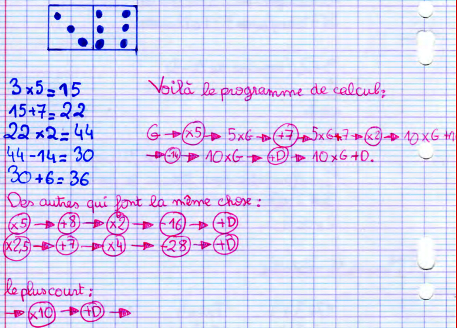 3 x 5 = 15
Voilà le programme de calcul:
15 + 7 = 22
22 x 2 = 44
G → x5 → 5xG → +7 → 5xG+7 → x2 → 10xG+14
44 - 14 = 30
→ -14 → 10xG → +D → 10xG+D.
30 + 6 = 36
Des autres qui font la même chose:
x5 → +8 → x2 → -16 → +D
x2,5 → +7 → x4 → -28 → +D
le plus court:
→ x10 → +D →